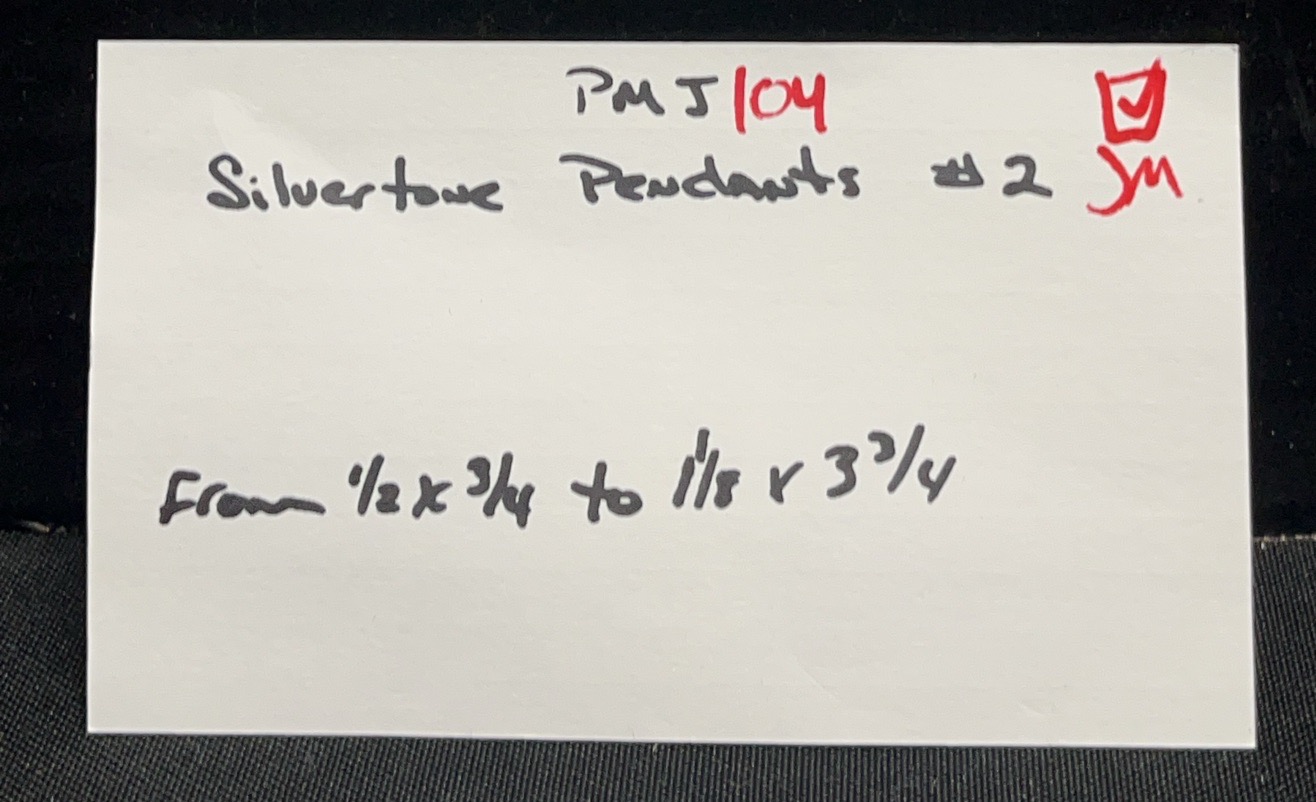 PMJ104 ☑
Silvertone Pendants #2 JM
From 1/2 x 3/4 to 1 1/8 x 3 3/4